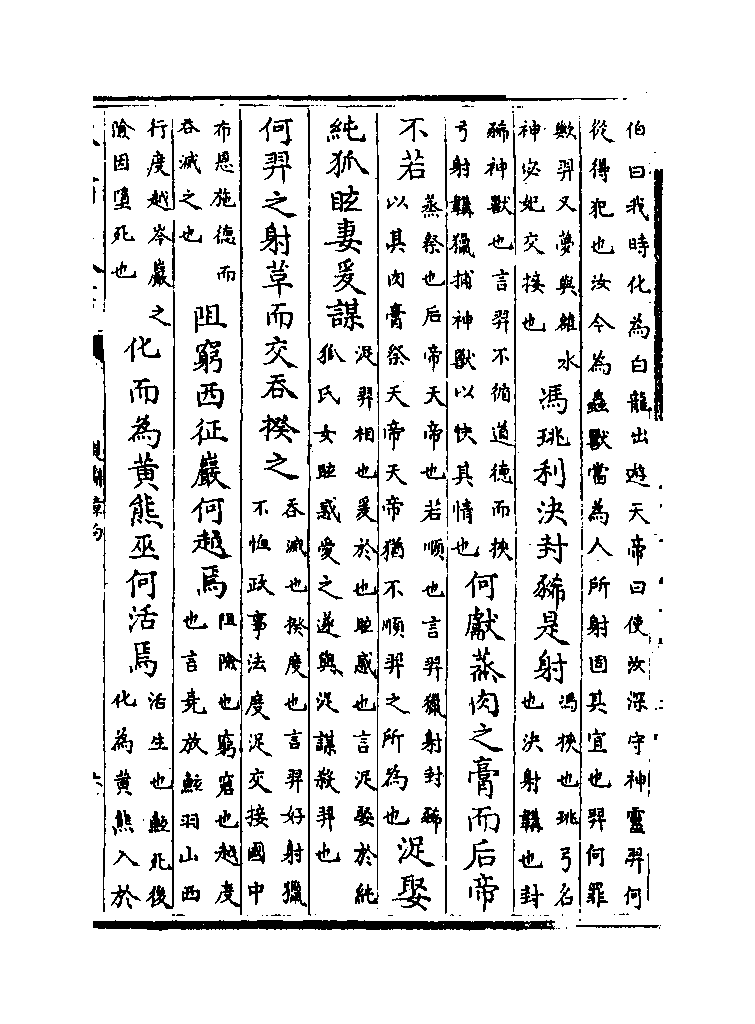 伯曰我時化為白龍出遊天帝曰使汝深守神靈羿何
從得犯也汝今為蟲獸當為人所射固其宜也羿何罪
歟羿又夢與雒水
神宓妃交接也
馮珧利決封豨是射
馮挾也珧弓名
也決射韝也封
豨神獸也言羿不循道德而挾
弓射韝獵捕神獸以快其情也
何獻蒸肉之膏而后帝
不若
蒸祭也后帝天帝也若順也言羿獵射封豨
以其肉膏祭天帝天帝猶不順羿之所為也
浞娶
純狐眩妻爰謀
浞羿相也爰於也眩惑也言浞娶於純
狐氏女眩惑愛之遂與浞謀殺羿也
何羿之射草而交吞揆之
吞滅也揆度也言羿好射獵
不恤政事法度浞交接國中
布恩施德而
吞滅之也
阻窮西征巖何越焉
阻險也窮窘也越度
也言堯放鯀羽山西
行度越岑巖之
險因墮死也
化而為黃熊巫何活焉
活生也鯀死後
化為黃熊入於